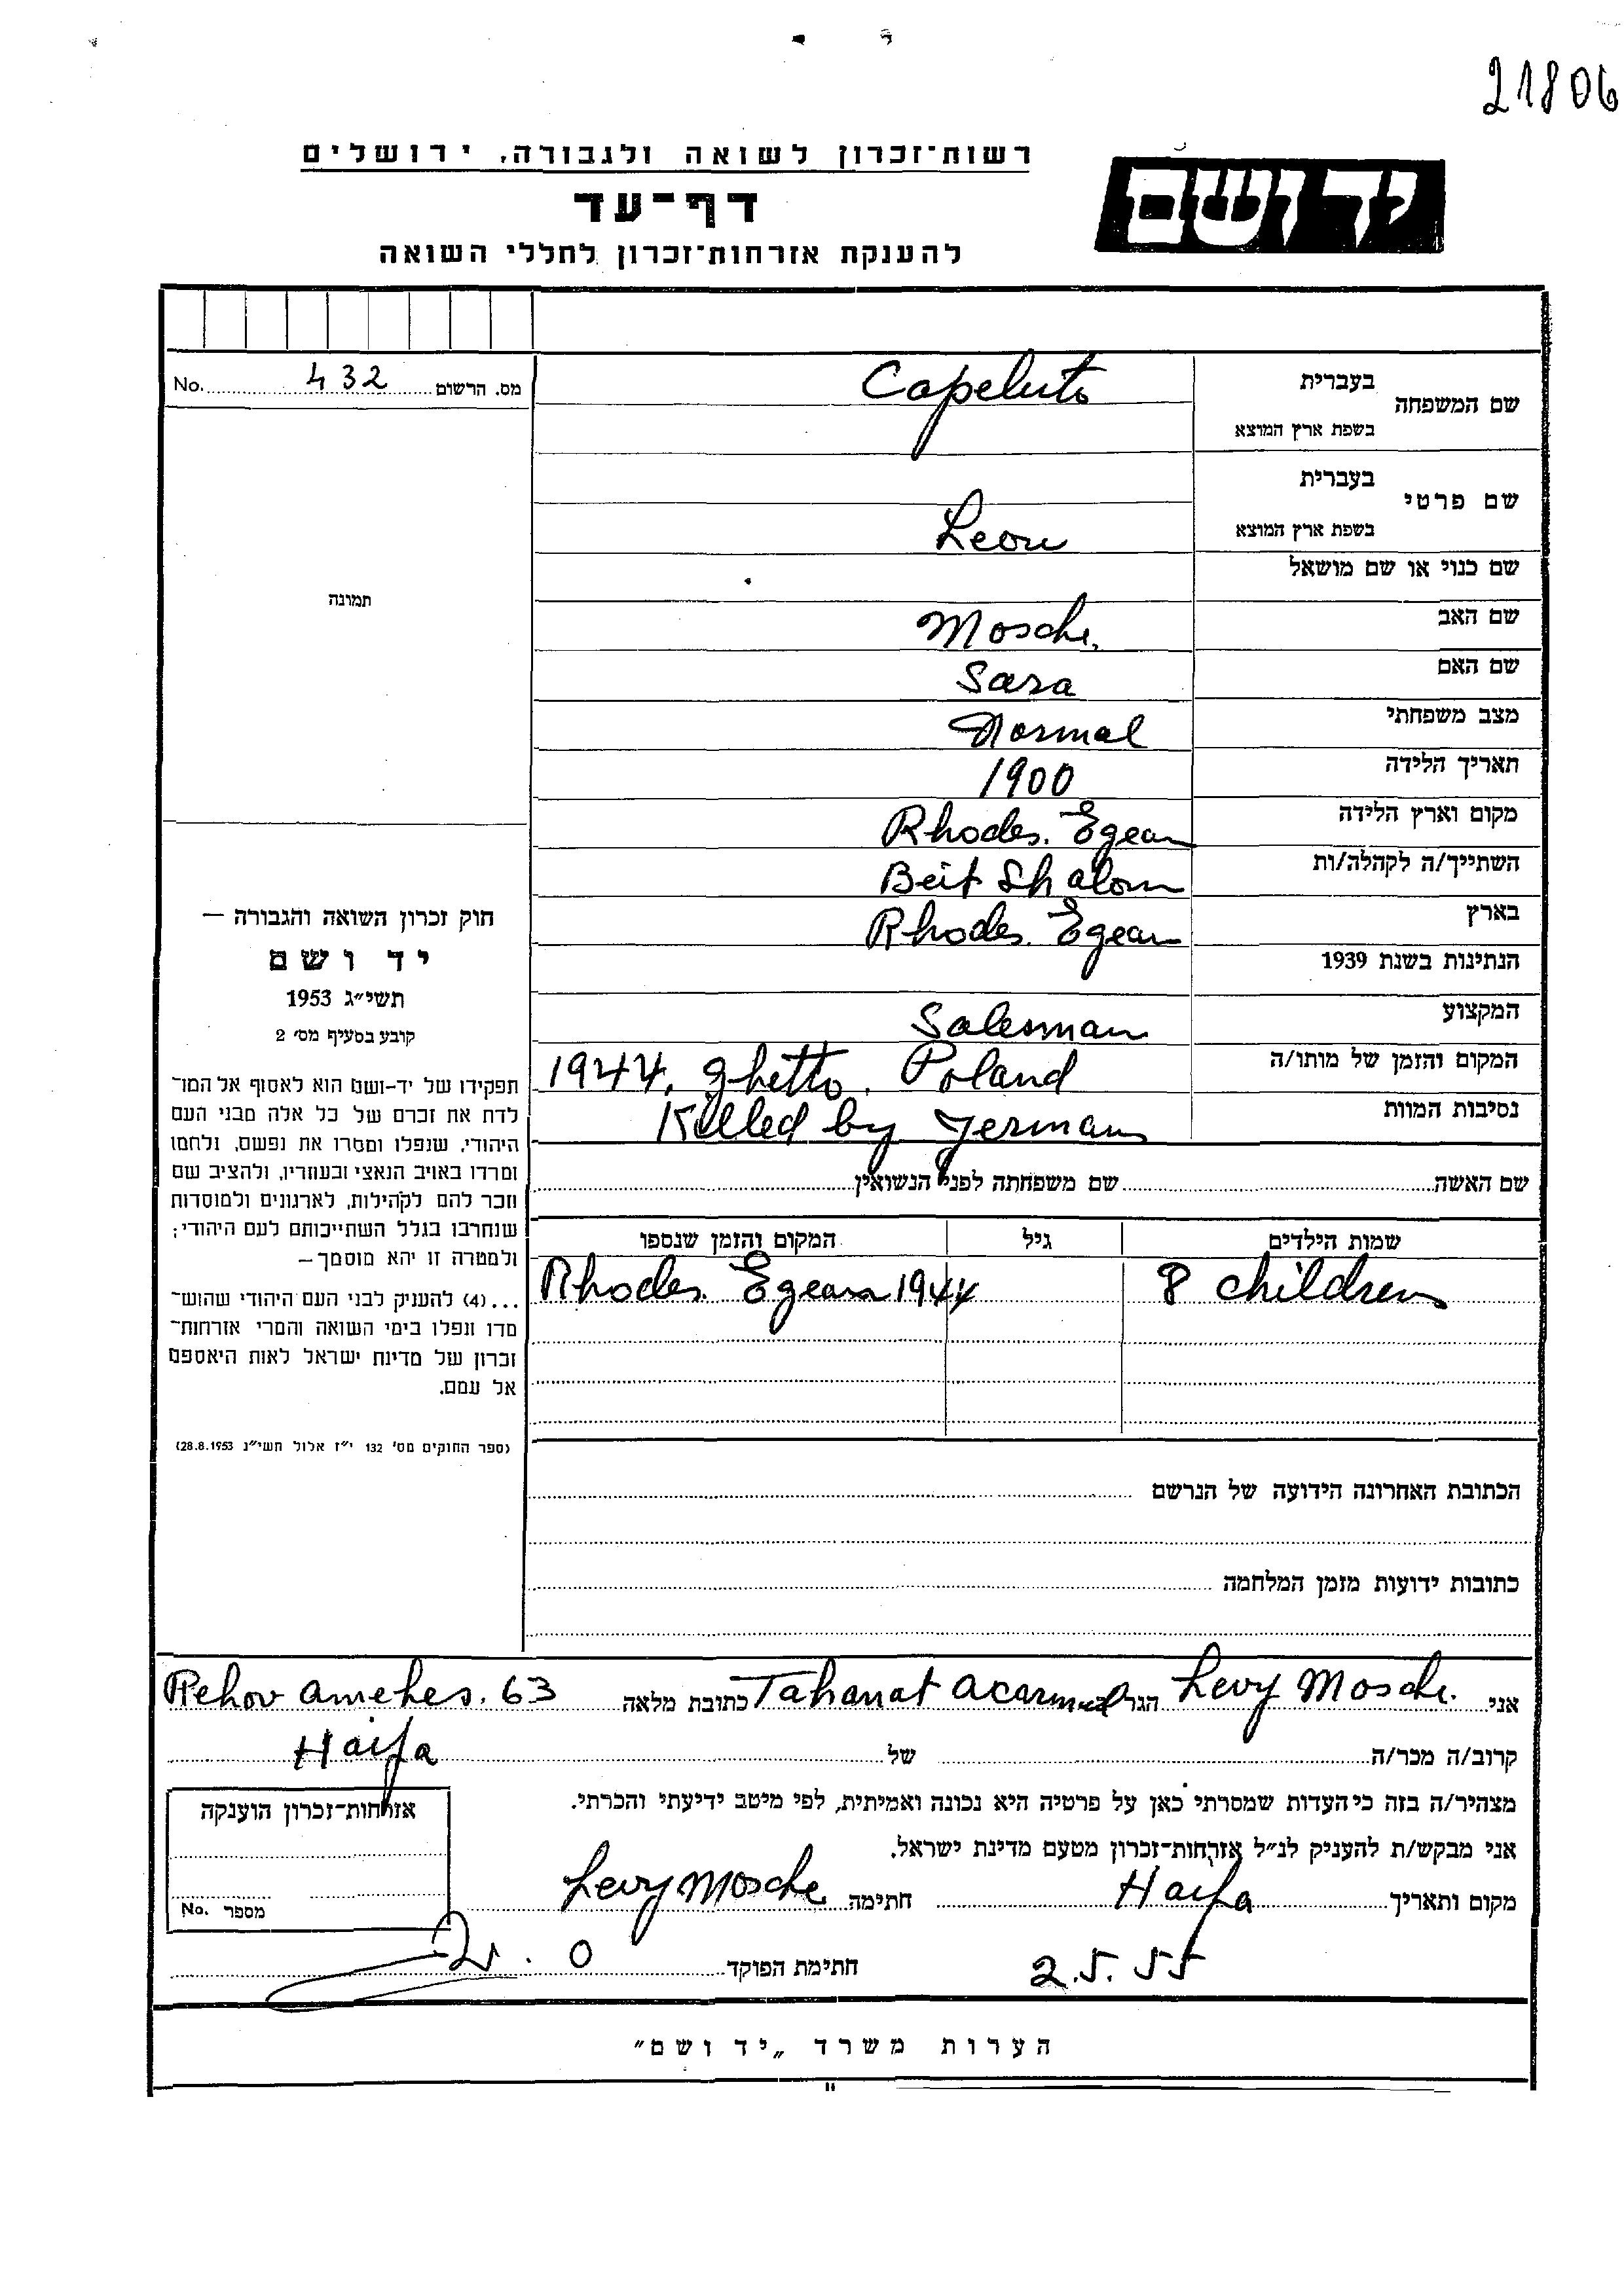 21806
יד ושם
רשות־זכרון לשואה ולגבורה, ירושלים
דף־עד
להענקת אזרחות־זכרון לחללי השואה
שם המשפחה בעברית Capeluto
בשפת ארץ המוצא
שם פרטי בעברית
בשפת ארץ המוצא Leon
שם כנוי או שם מושאל
שם האב Mosche.
שם האם Sara
מצב משפחתי Normal
תאריך הלידה 1900
מקום וארץ הלידה Rhodes. Egean
השתייך/ה לקהלה/ות Beit Shalom
בארץ Rhodes. Egean
הנתינות בשנת 1939
המקצוע Salesman
המקום והזמן של מותו/ה 1944. ghetto. Poland
נסיבות המוות Killed by germans
שם האשה שם משפחתה לפני הנשואין
שמות הילדים גיל המקום והזמן שנספו
8 children Rhodes. Egean 1944
הכתובת האחרונה הידועה של הנרשם
כתובות ידועות מזמן המלחמה
מס. הרשום 432 No.
תמונה
חוק זכרון השואה והגבורה —
יד ושם
תשי״ג 1953
קובע בסעיף מס׳ 2
תפקידו של יד-ושם הוא לאסוף אל המו־
לדת את זכרם של כל אלה מבני העם
היהודי, שנפלו ומסרו את נפשם, נלחמו
ומרדו באויב הנאצי ובעוזריו, ולהציב שם
וזכר להם לקהילות, לארגונים ולמוסדות
שנחרבו בגלל השתייכותם לעם היהודי;
ולמטרה זו יהא מוסמך —
...(4) להעניק לבני העם היהודי שהוש־
מדו ונפלו בימי השואה והמרי אזרחות־
זכרון של מדינת ישראל לאות היאספם
אל עמם.
(ספר החוקים מס׳ 132 י״ז אלול תשי״ג 28.8.1953)
אני Levy Mosche. הגר Tahanat acarmel כתובת מלאה Rehov amehes. 63
קרוב/ה מכר/ה של Haifa
מצהיר/ה בזה כי העדות שמסרתי כאן על פרטיה היא נכונה ואמיתית, לפי מיטב ידיעתי והכרתי.
אני מבקש/ת להעניק לנ״ל אזרחות־זכרון מטעם מדינת ישראל.
מקום ותאריך Haifa חתימה Levy Mosche
2.5.55 חתימת הפוקד
אזרחות־זכרון הוענקה
מספר No.
הערות משרד „יד ושם״